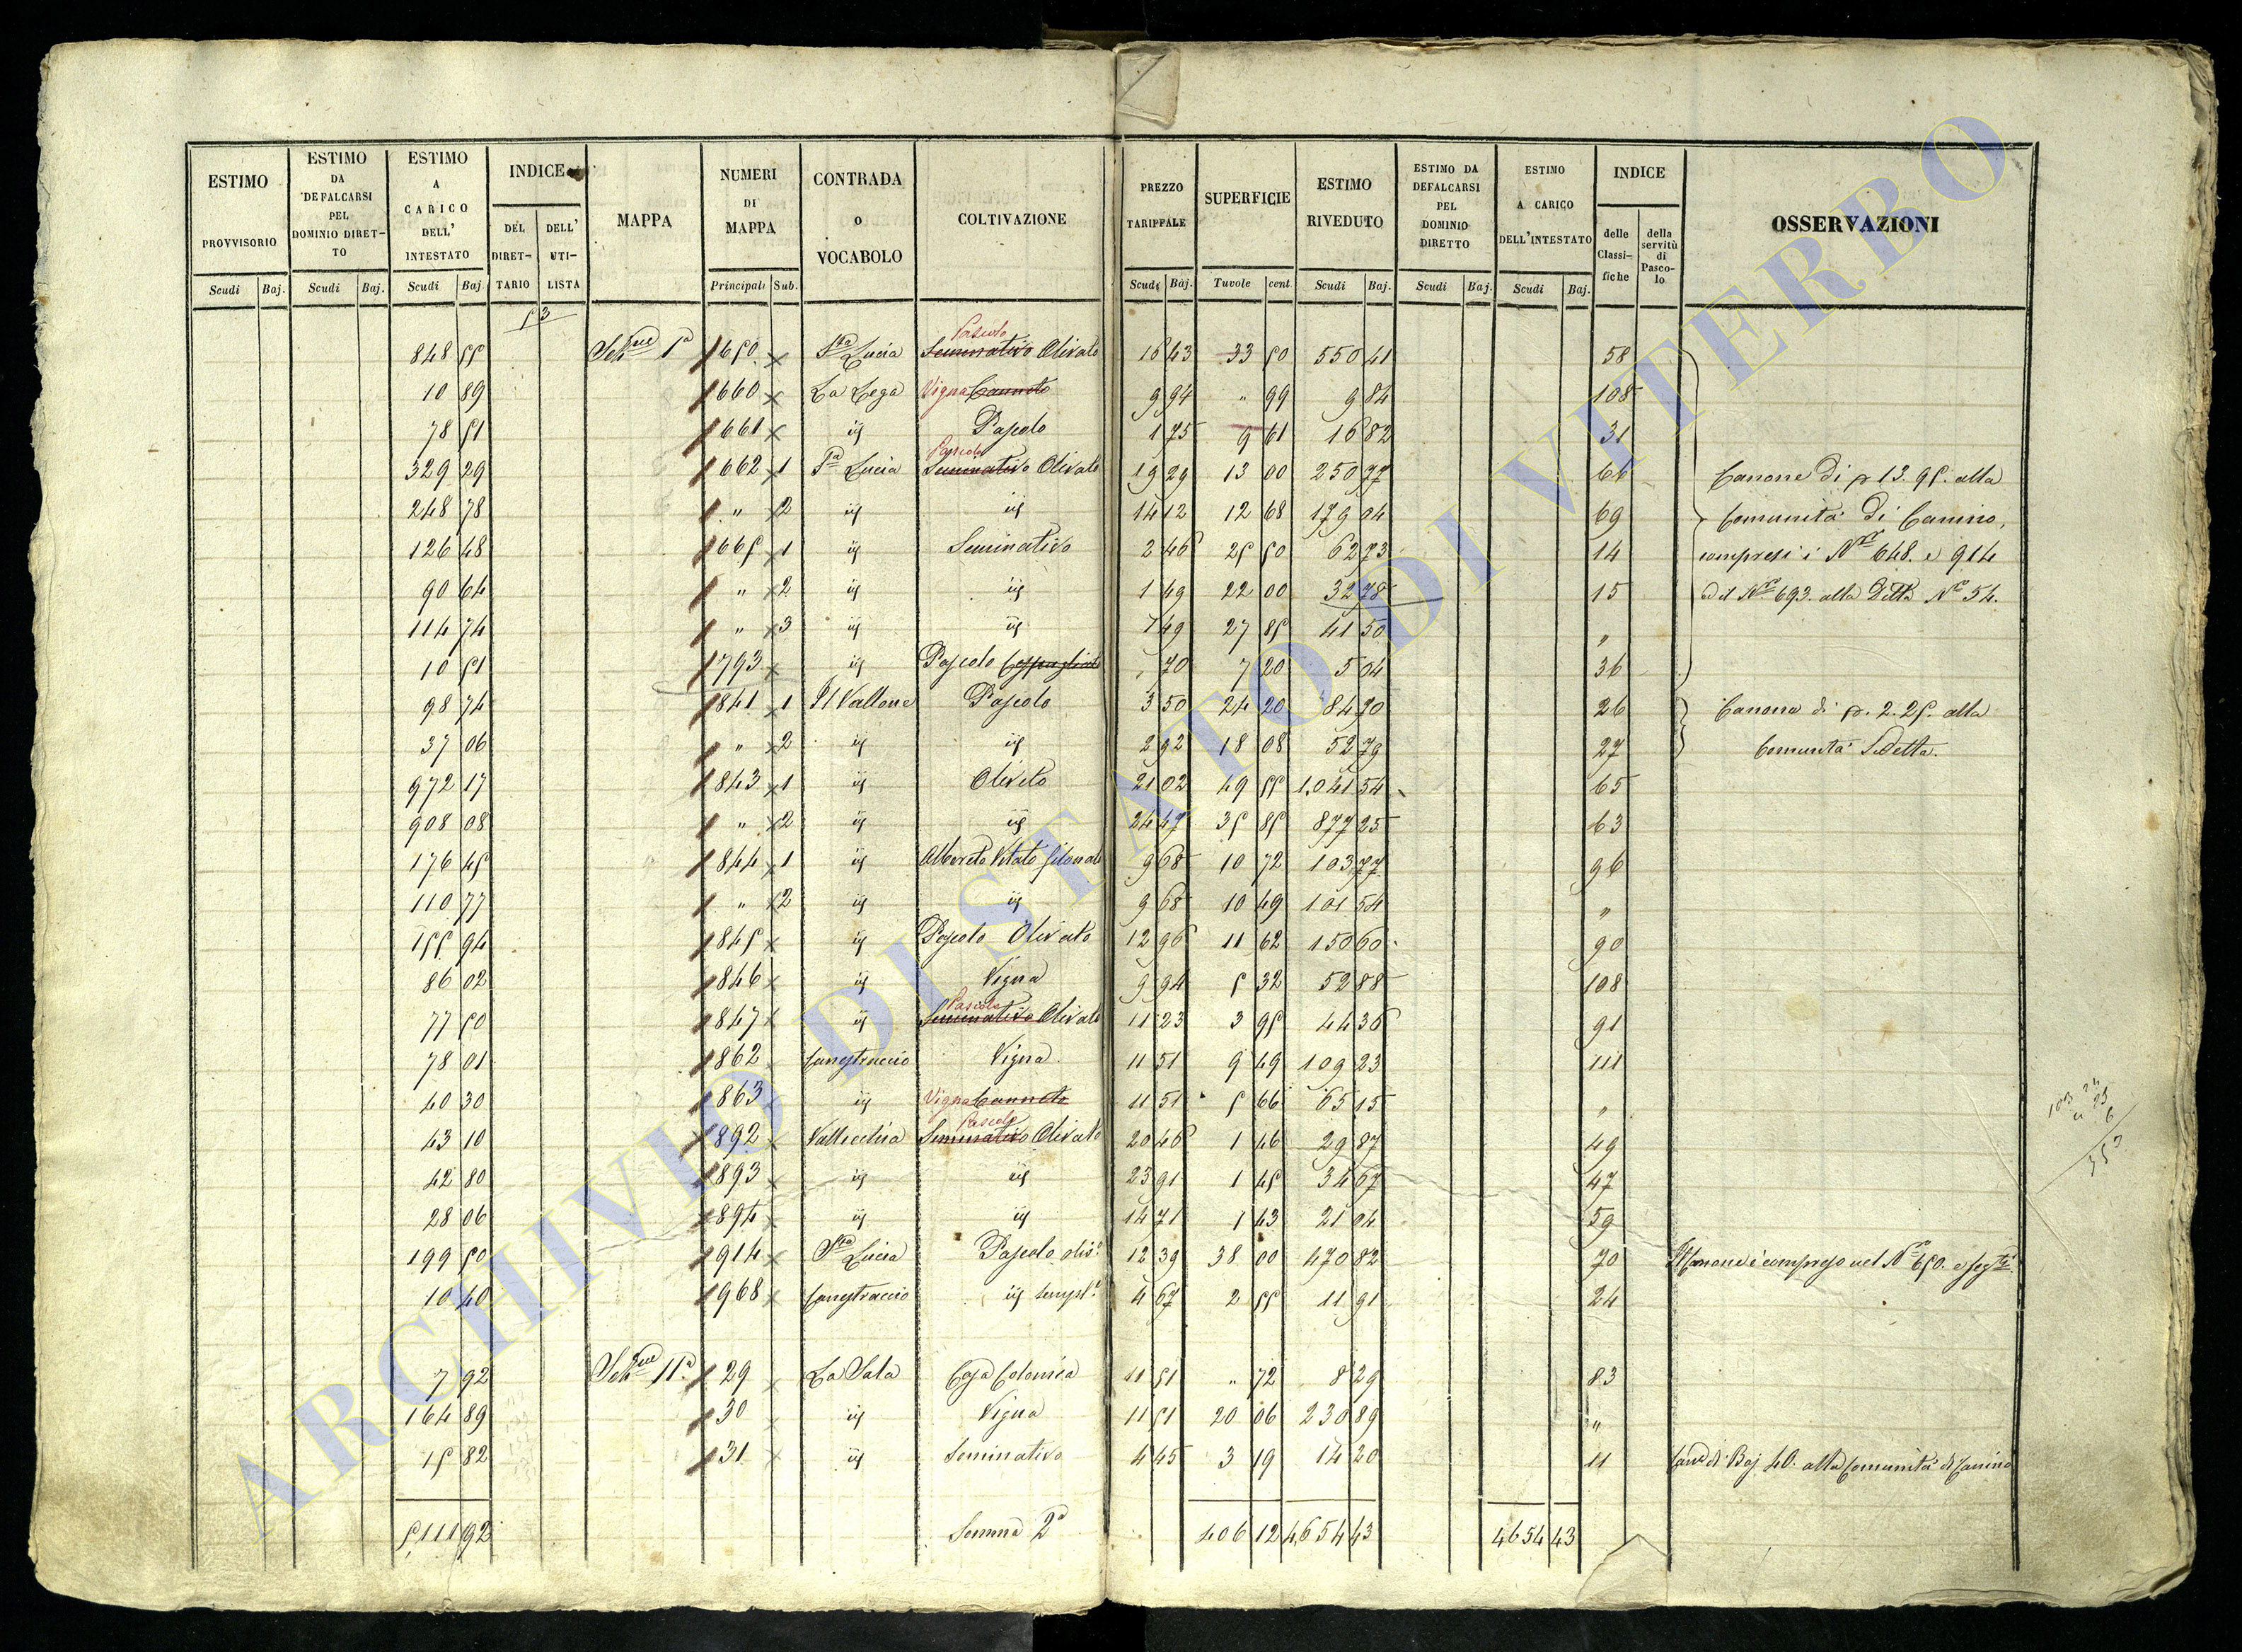 ESTIMO PROVVISORIO | ESTIMO DA DEFALCARSI PEL DOMINIO DIRETTO | ESTIMO A CARICO DELL' INTESTATO | INDICE DEL DIRETTARIO | DELL' UTILISTA | MAPPA | NUMERI DI MAPPA | CONTRADA o VOCABOLO | COLTIVAZIONE | PREZZO TARIFFALE | SUPERFICIE | ESTIMO RIVEDUTO | ESTIMO DA DEFALCARSI PEL DOMINIO DIRETTO | ESTIMO A CARICO DELL'INTESTATO | INDICE delle Classifiche | della servitù di Pascolo | OSSERVAZIONI
Scudi Baj. Scudi Baj. Scudi Baj Principali Sub. Scudi Baj. Tavole cent Scudi Baj. Scudi Baj. Scudi Baj.
53
848 55 Sezne 1a 650 Sta Lucia Pascolo Seminativo Olivato 16 43 33 50 550 41 58
10 89 660 La Lega Vigna Canneto 9 94 " 99 9 84 108
78 51 661 ij Pascolo 1 75 9 61 16 82 31
329 29 662 1 Sta Lucia Pascolo Seminativo Olivato 19 29 13 00 250 77 66 Canone di 13.95. alla
248 78 " 2 ij ij 14 12 12 68 179 04 69 Comunità di Canino,
126 48 665 1 ij Seminativo 2 46 25 50 62 73 14 compresi i Nri 648. e 914
90 64 " 2 ij ij 1 49 22 00 32 78 15 ed il No 693. alla Ditta No 54.
114 74 " 3 ij ij 1 49 27 85 41 50 "
10 51 793 ij Pascolo Cespugliato " 70 7 20 5 04 36
98 74 841 1 Il Vallone Pascolo 3 50 24 20 84 70 26 Canone di 2.25. alla
37 06 " 2 ij ij 2 92 18 08 52 79 27 Comunità Sudetta.
972 17 843 1 ij Oliveto 21 02 49 55 1,041 54 65
908 08 " 2 ij ij 24 47 35 85 877 25 63
176 45 844 1 ij Alberato Vitato filonato 9 68 10 72 103 77 96
110 77 " 2 ij ij 9 68 10 49 101 54 "
155 94 845 ij Pascolo Olivato 12 96 11 62 150 60 90
86 02 846 ij Vigna 9 94 5 32 52 88 108
77 50 847 ij Pascolo Seminativo Olivato 11 23 3 95 44 36 91
78 01 862 Canestraccio Vigna 11 51 9 49 109 23 111
40 30 863 ij Vigna Canneto 11 51 5 66 65 15 "
43 10 892 Pascolo Seminativo Olivato 20 46 1 46 29 87 49
42 80 893 ij ij 23 91 1 45 34 67 47
28 06 894 ij ij 14 71 1 43 21 04 59
199 50 914 Sta Lucia Pascolo oliv.o 12 39 38 00 470 82 70 Il Canone è compreso nel No 650. e segti
10 40 968 Canestraccio ij sempl.e 4 67 2 55 11 91 24
7 92 Sezne 11a 29 La Sala Casa Colonica 11 51 " 72 8 29 83
164 89 30 ij Vigna 11 51 20 06 230 89 "
15 82 31 ij Seminativo 4 45 3 19 14 20 11 Cane di Baj 40. alla Comunità di Canino
5,111 92 Somma 2a 406 12 4,654 43 4654 43
353
ARCHIVIO DI STATO DI VITERBO